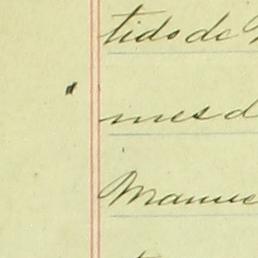 tido de
mes d
Manue